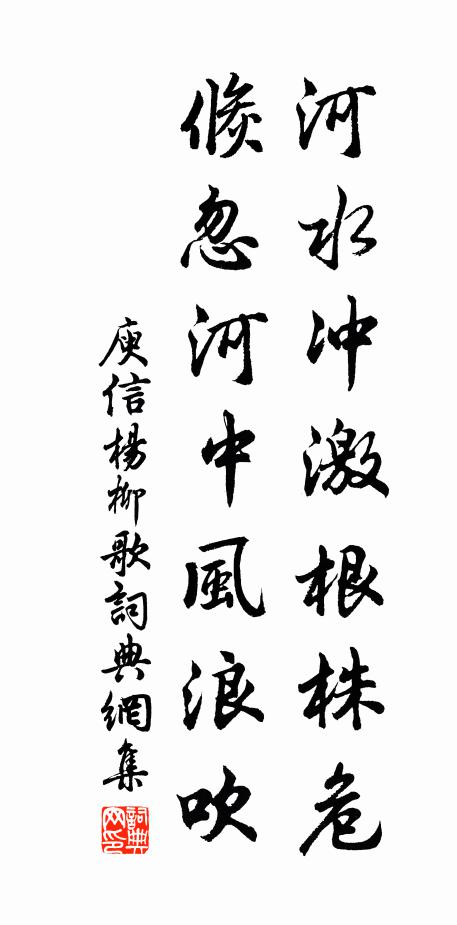 河水冲激根株危
倏忽河中風浪吹
庾信楊柳歌詞典網集
詞典网印